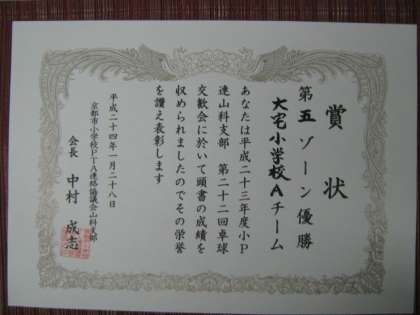 賞状
第五ゾーン優勝
大宅小学校Aチーム
あなたは平成二十三年度小P
連山科支部 第二十二回卓球
交歓会に於いて頭書の成績を
収められましたのでその栄誉
を讃え表彰します
平成二十四年一月二十八日
京都市小学校PTA連絡協議会山科支部
会長 中村 成志